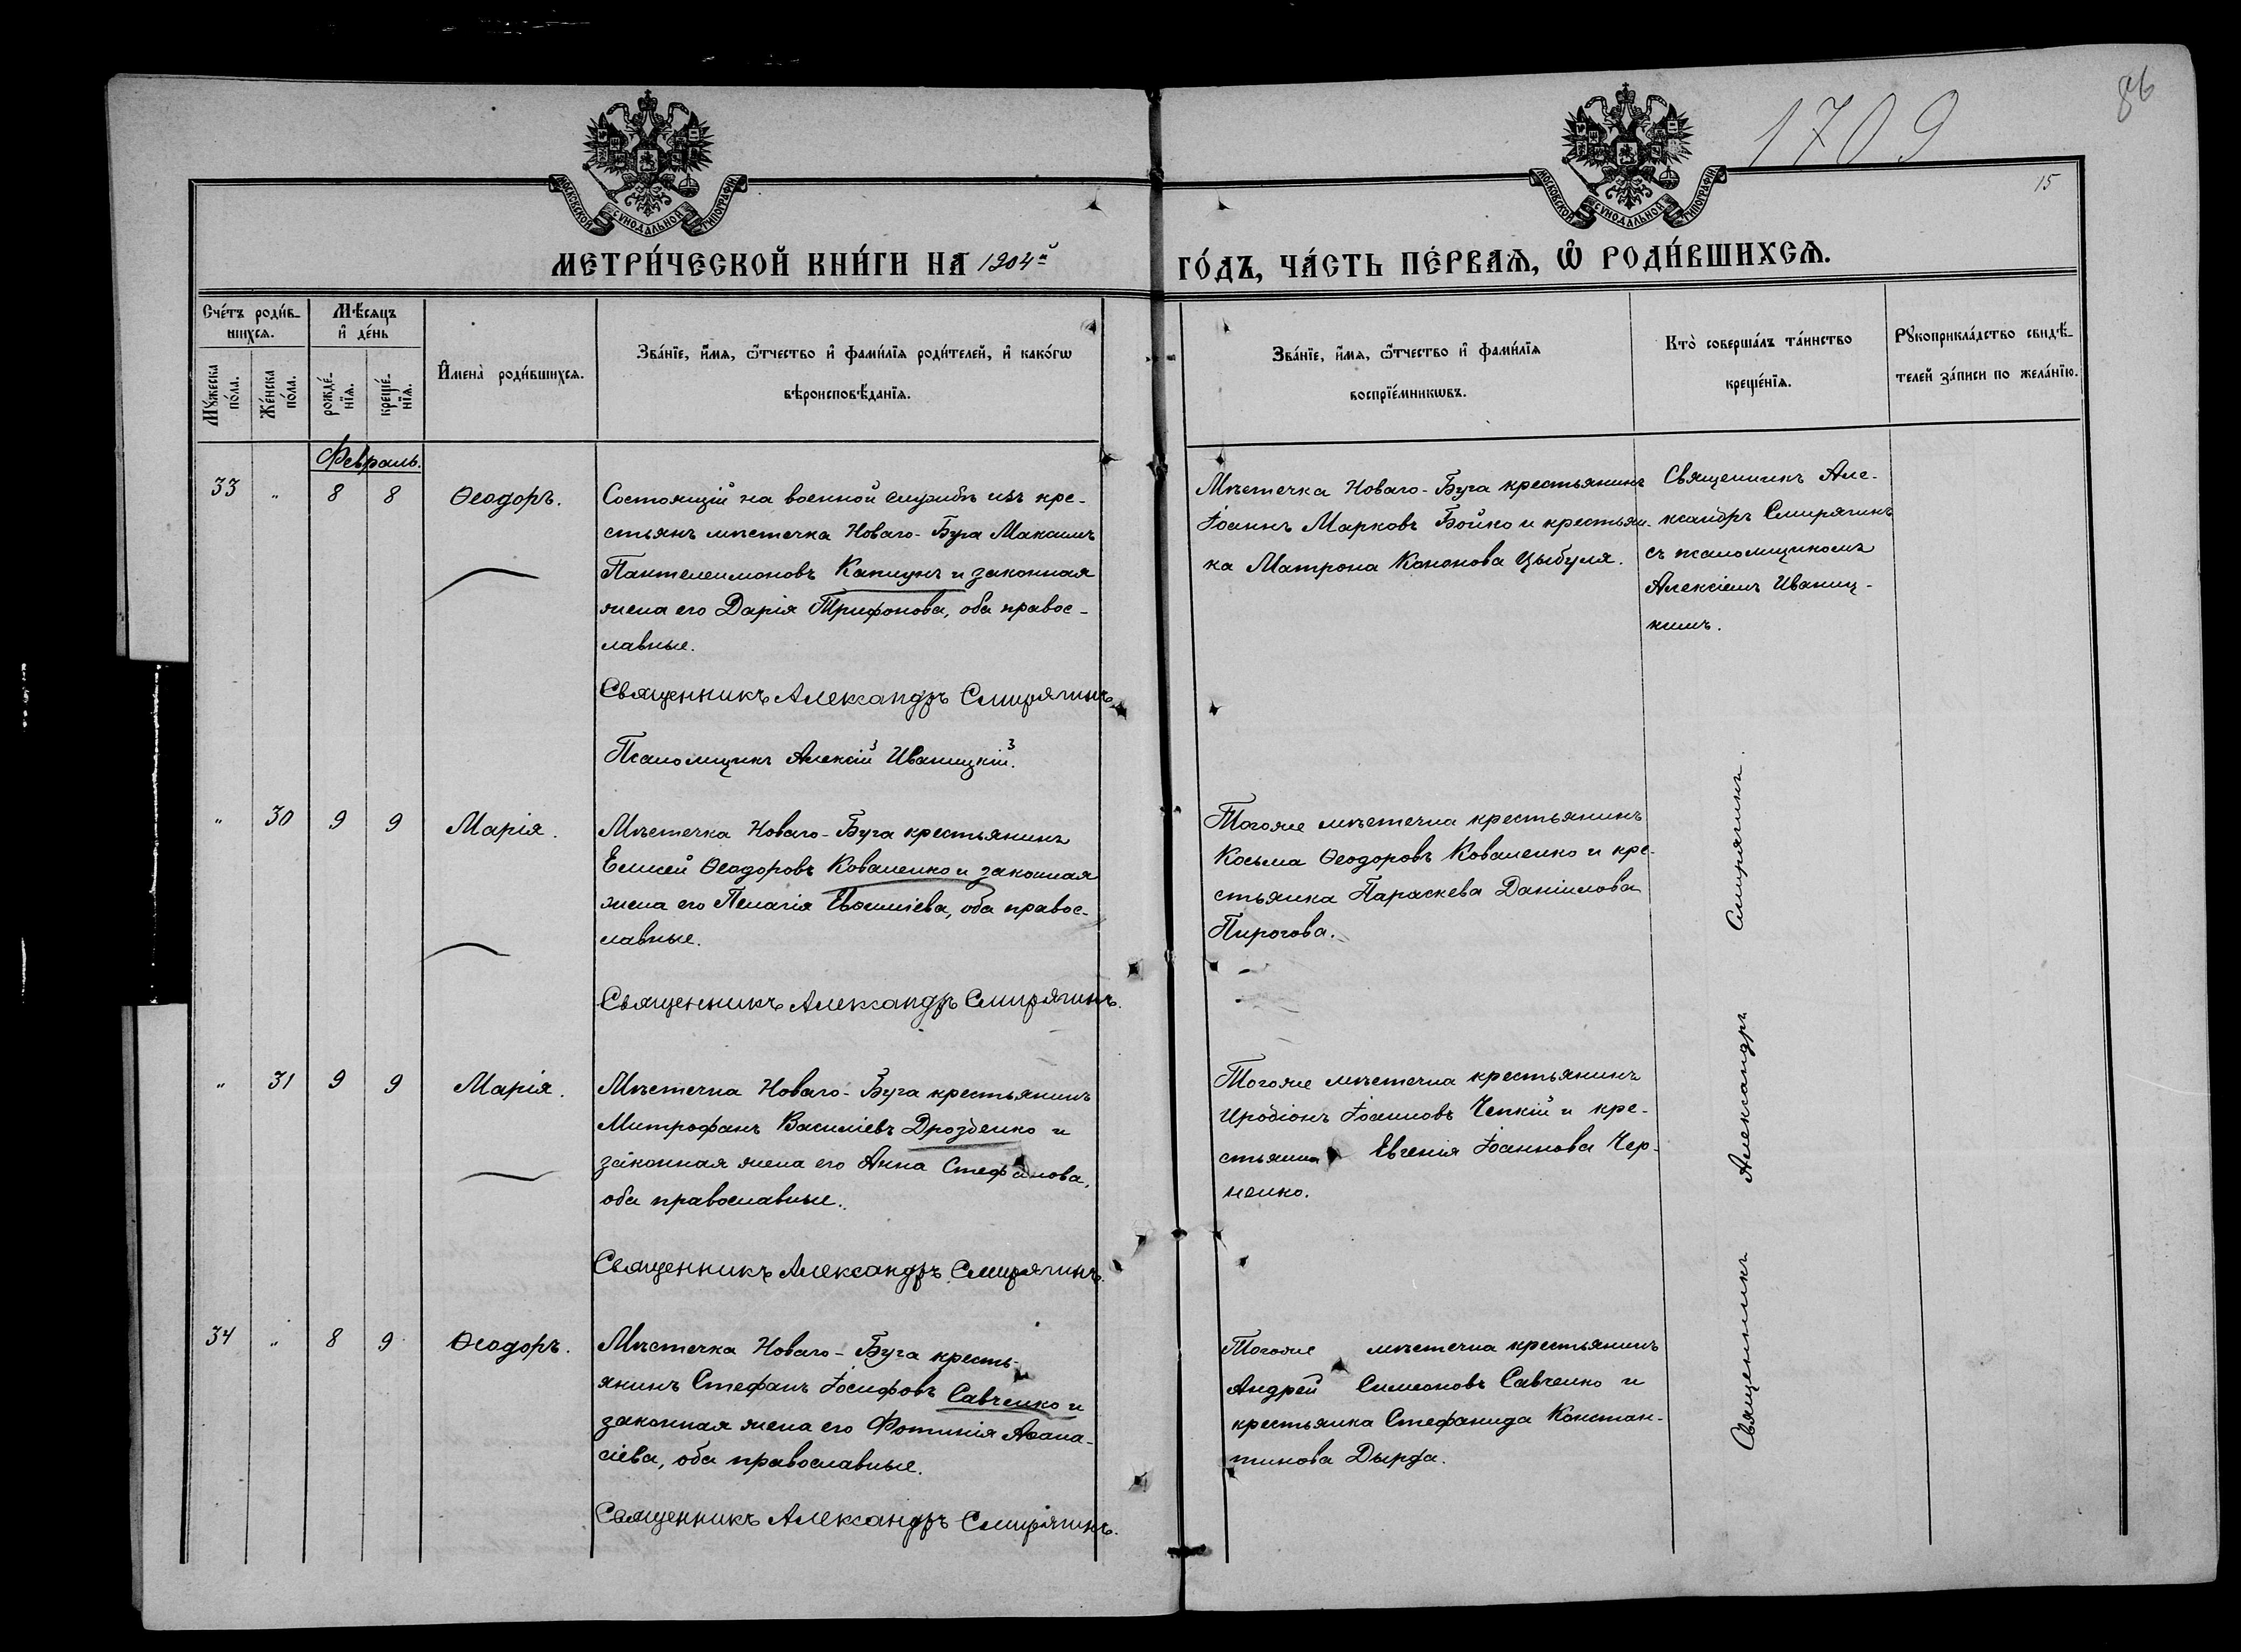 1709
86
15
МОСКОВСКОЙ СУНОДАЛЬНОЙ ТИПОГРАФІИ
МОСКОВСКОЙ СУНОДАЛЬНОЙ ТИПОГРАФІИ
МЕТРИ́ЧЕСКОЙ КНИ́ГИ НА 1904й ГО́ДЪ, ЧА́СТЬ ПЕ́РВАѦ, Ѡ҆ РОДИ́ВШИХСѦ.
Сче́тъ роди́в-
шихсѧ.
Мꙋжеска по́ла.
Же́нска по́ла.
Мѣ́сѧцъ
и҆ де́нь
рожде́-
нїѧ.
креще́-
нїѧ.
И҆мена̀ роди́вшихсѧ.
Зва́нїе, и҆́мѧ, ѻ҆́тчество и҆ фами́лїѧ роди́телей, и҆ како́гѡ
вѣроисповѣ́данїѧ.
Зва́нїе, и҆́мѧ, ѻ҆́тчество и҆ фами́лїѧ
воспрїе́мникѡвъ.
Кто̀ соверша́лъ та́инство
креще́нїѧ.
Рꙋкоприкла́дство свидѣ́-
телей за́писи по жела́нїю.
Февраль.
33 " 8 8 Ѳеодоръ.
Состоящій на военной службѣ изъ кре-
стьянъ мѣстечка Новаго-Буга Максимъ
Пантелеимоновъ Каплунъ и законная
жена его Дарія Трифонова, оба правос-
лавные.
Священникъ Александръ Смирягинъ.
Псаломщикъ Алексій Иваницкій.
Мѣстечка Новаго-Буга крестьянинъ
Іоаннъ Марковъ Бойко и крестьян-
ка Матрона Кононова Цыбуля.
Священникъ Але-
ксандръ Смирягинъ
съ псаломщикомъ
Алексіемъ Иваниц-
кимъ.
" 30 9 9 Марія.
Мѣстечка Новаго-Буга крестьянинъ
Елисей Ѳеодоровъ Коваленко и законная
жена его Пелагія, оба правос-
лавные.
Священникъ Александръ Смирягинъ.
Тогоже мѣстечка крестьянинъ
Косьма Ѳеодоровъ Коваленко и кре-
стьянка Параскева Даніилова
Пирогова.
" 31 9 9 Марія.
Мѣстечка Новаго-Буга крестьянинъ
Митрофанъ Василіевъ Дрозденко и
законная жена его Анна Стефанова,
оба православные.
Священникъ Александръ Смирягинъ.
Тогоже мѣстечка крестьянинъ
Иродіонъ Іоанновъ и кре-
стьянка Евгенія Іоаннова Чер-
ненко.
34 " 8 9 Ѳеодоръ.
Мѣстечка Новаго-Буга кресть-
янинъ Стефанъ Іосифовъ Савченко и
законная жена его Фотинія Аѳана-
сіева, оба православные.
Священникъ Александръ Смирягинъ.
Тогоже мѣстечка крестьянинъ
Андрей Симеоновъ Савченко и
крестьянка Стефанида Констан-
тинова Дырда.
Священникъ Александръ Смирягинъ.